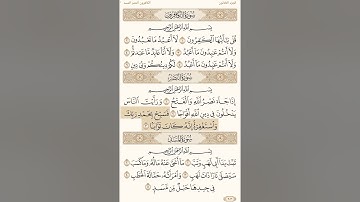 سُورَةُ الكَافِرُونَ
بِسْمِ اللَّهِ الرَّحْمَٰنِ الرَّحِيمِ
قُلْ يَا أَيُّهَا الْكَافِرُونَ ۝ لَا أَعْبُدُ مَا تَعْبُدُونَ
۝ وَلَا أَنتُمْ عَابِدُونَ مَا أَعْبُدُ ۝ وَلَا أَنَا عَابِدٌ مَّا عَبَدتُّمْ
۝ وَلَا أَنتُمْ عَابِدُونَ مَا أَعْبُدُ ۝ لَكُمْ دِينُكُمْ وَلِيَ دِينِ
سُورَةُ النَّصْرِ
بِسْمِ اللَّهِ الرَّحْمَٰنِ الرَّحِيمِ
إِذَا جَاءَ نَصْرُ اللَّهِ وَالْفَتْحُ ۝ وَرَأَيْتَ النَّاسَ
يَدْخُلُونَ فِي دِينِ اللَّهِ أَفْوَاجًا ۝ فَسَبِّحْ بِحَمْدِ رَبِّكَ
وَاسْتَغْفِرْهُ إِنَّهُ كَانَ تَوَّابًا ۝
سُورَةُ المَسَدِ
بِسْمِ اللَّهِ الرَّحْمَٰنِ الرَّحِيمِ
تَبَّتْ يَدَا أَبِي لَهَبٍ وَتَبَّ ۝ مَا أَغْنَىٰ عَنْهُ مَالُهُ وَمَا كَسَبَ
۝ سَيَصْلَىٰ نَارًا ذَاتَ لَهَبٍ ۝ وَامْرَأَتُهُ حَمَّالَةَ الْحَطَبِ
۝ فِي جِيدِهَا حَبْلٌ مِّن مَّسَدٍ ۝